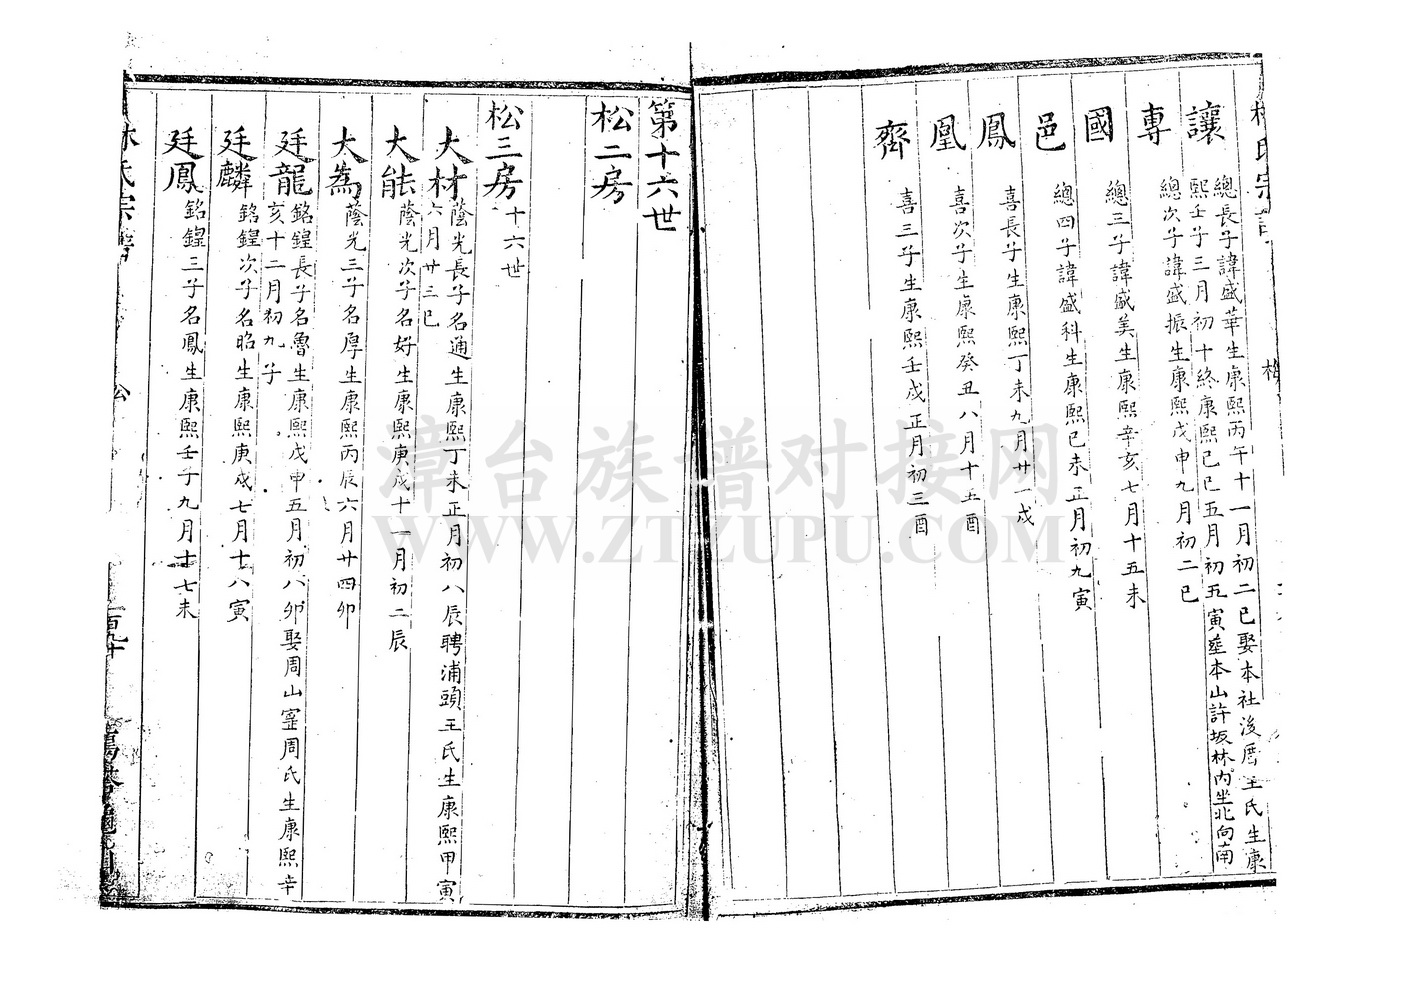 林氏宗譜
梅
讓
總長子諱盛華生康熙丙午十一月初二巳娶本社後厝王氏生康
熙壬子三月初十終康熙己巳五月初五寅塟本山許坂林內坐北向南
專
總次子諱盛振生康熙戊申九月初二巳
國
總三子諱盛美生康熙辛亥七月十五未
邑
總四子諱盛科生康熙己未正月初九寅
鳳
喜長子生康熙丁未九月廿一戌
凰
喜次子生康熙癸丑八月十五酉
齊
喜三子生康熙壬戌正月初三酉
第十六世
松二房
松三房 十六世
大材
蔭光長子名通生康熙丁未正月初八辰聘浦頭王氏生康熙甲寅
六月廿三巳
大能
蔭光次子名好生康熙庚戌十一月初二辰
大為
蔭光三子名厚生康熙丙辰六月廿四卯
廷龍
銘鍠長子名魯生康熙戊申五月初八卯娶周山寔周氏生康熙辛
亥十二月初九子
廷麟
銘鍠次子名昭生康熙庚戌七月十八寅
廷鳳
銘鍠三子名鳳生康熙壬子九月十七未
林氏宗譜
松
漳台族谱对接网
WWW.ZTZUPU.COM